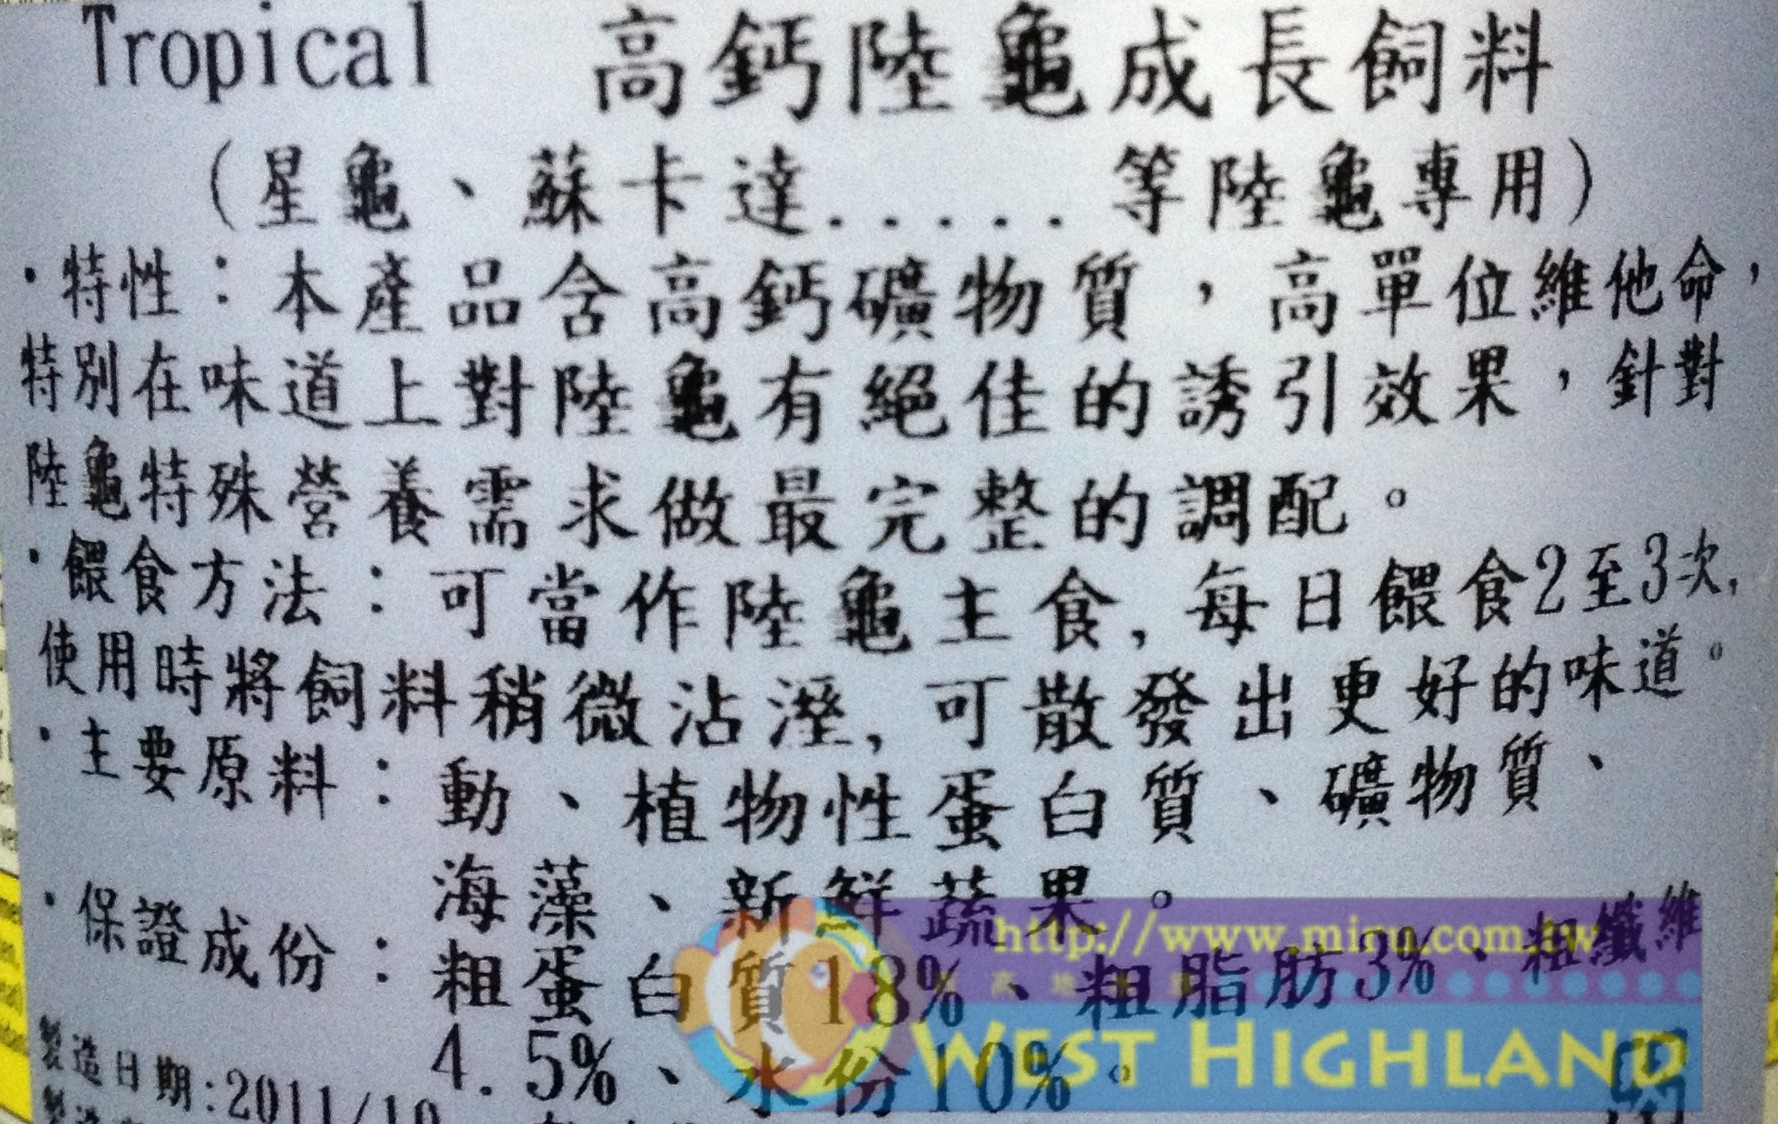 Tropical 高鈣陸龜成長飼料
(星龜、蘇卡達.....等陸龜專用)
·特性：本產品含高鈣礦物質，高單位維他命，
特別在味道上對陸龜有絕佳的誘引效果，針對
陸龜特殊營養需求做最完整的調配。
·餵食方法：可當作陸龜主食,每日餵食2至3次,
使用時將飼料稍微沾溼,可散發出更好的味道。
·主要原料：動、植物性蛋白質、礦物質、
海藻、新鮮蔬果。
·保證成份：粗蛋白質18%、粗脂肪3%、粗纖維
4.5%、水份10%。
http://www.migu.com.tw
WEST HIGHLAND
製造日期:2011/10